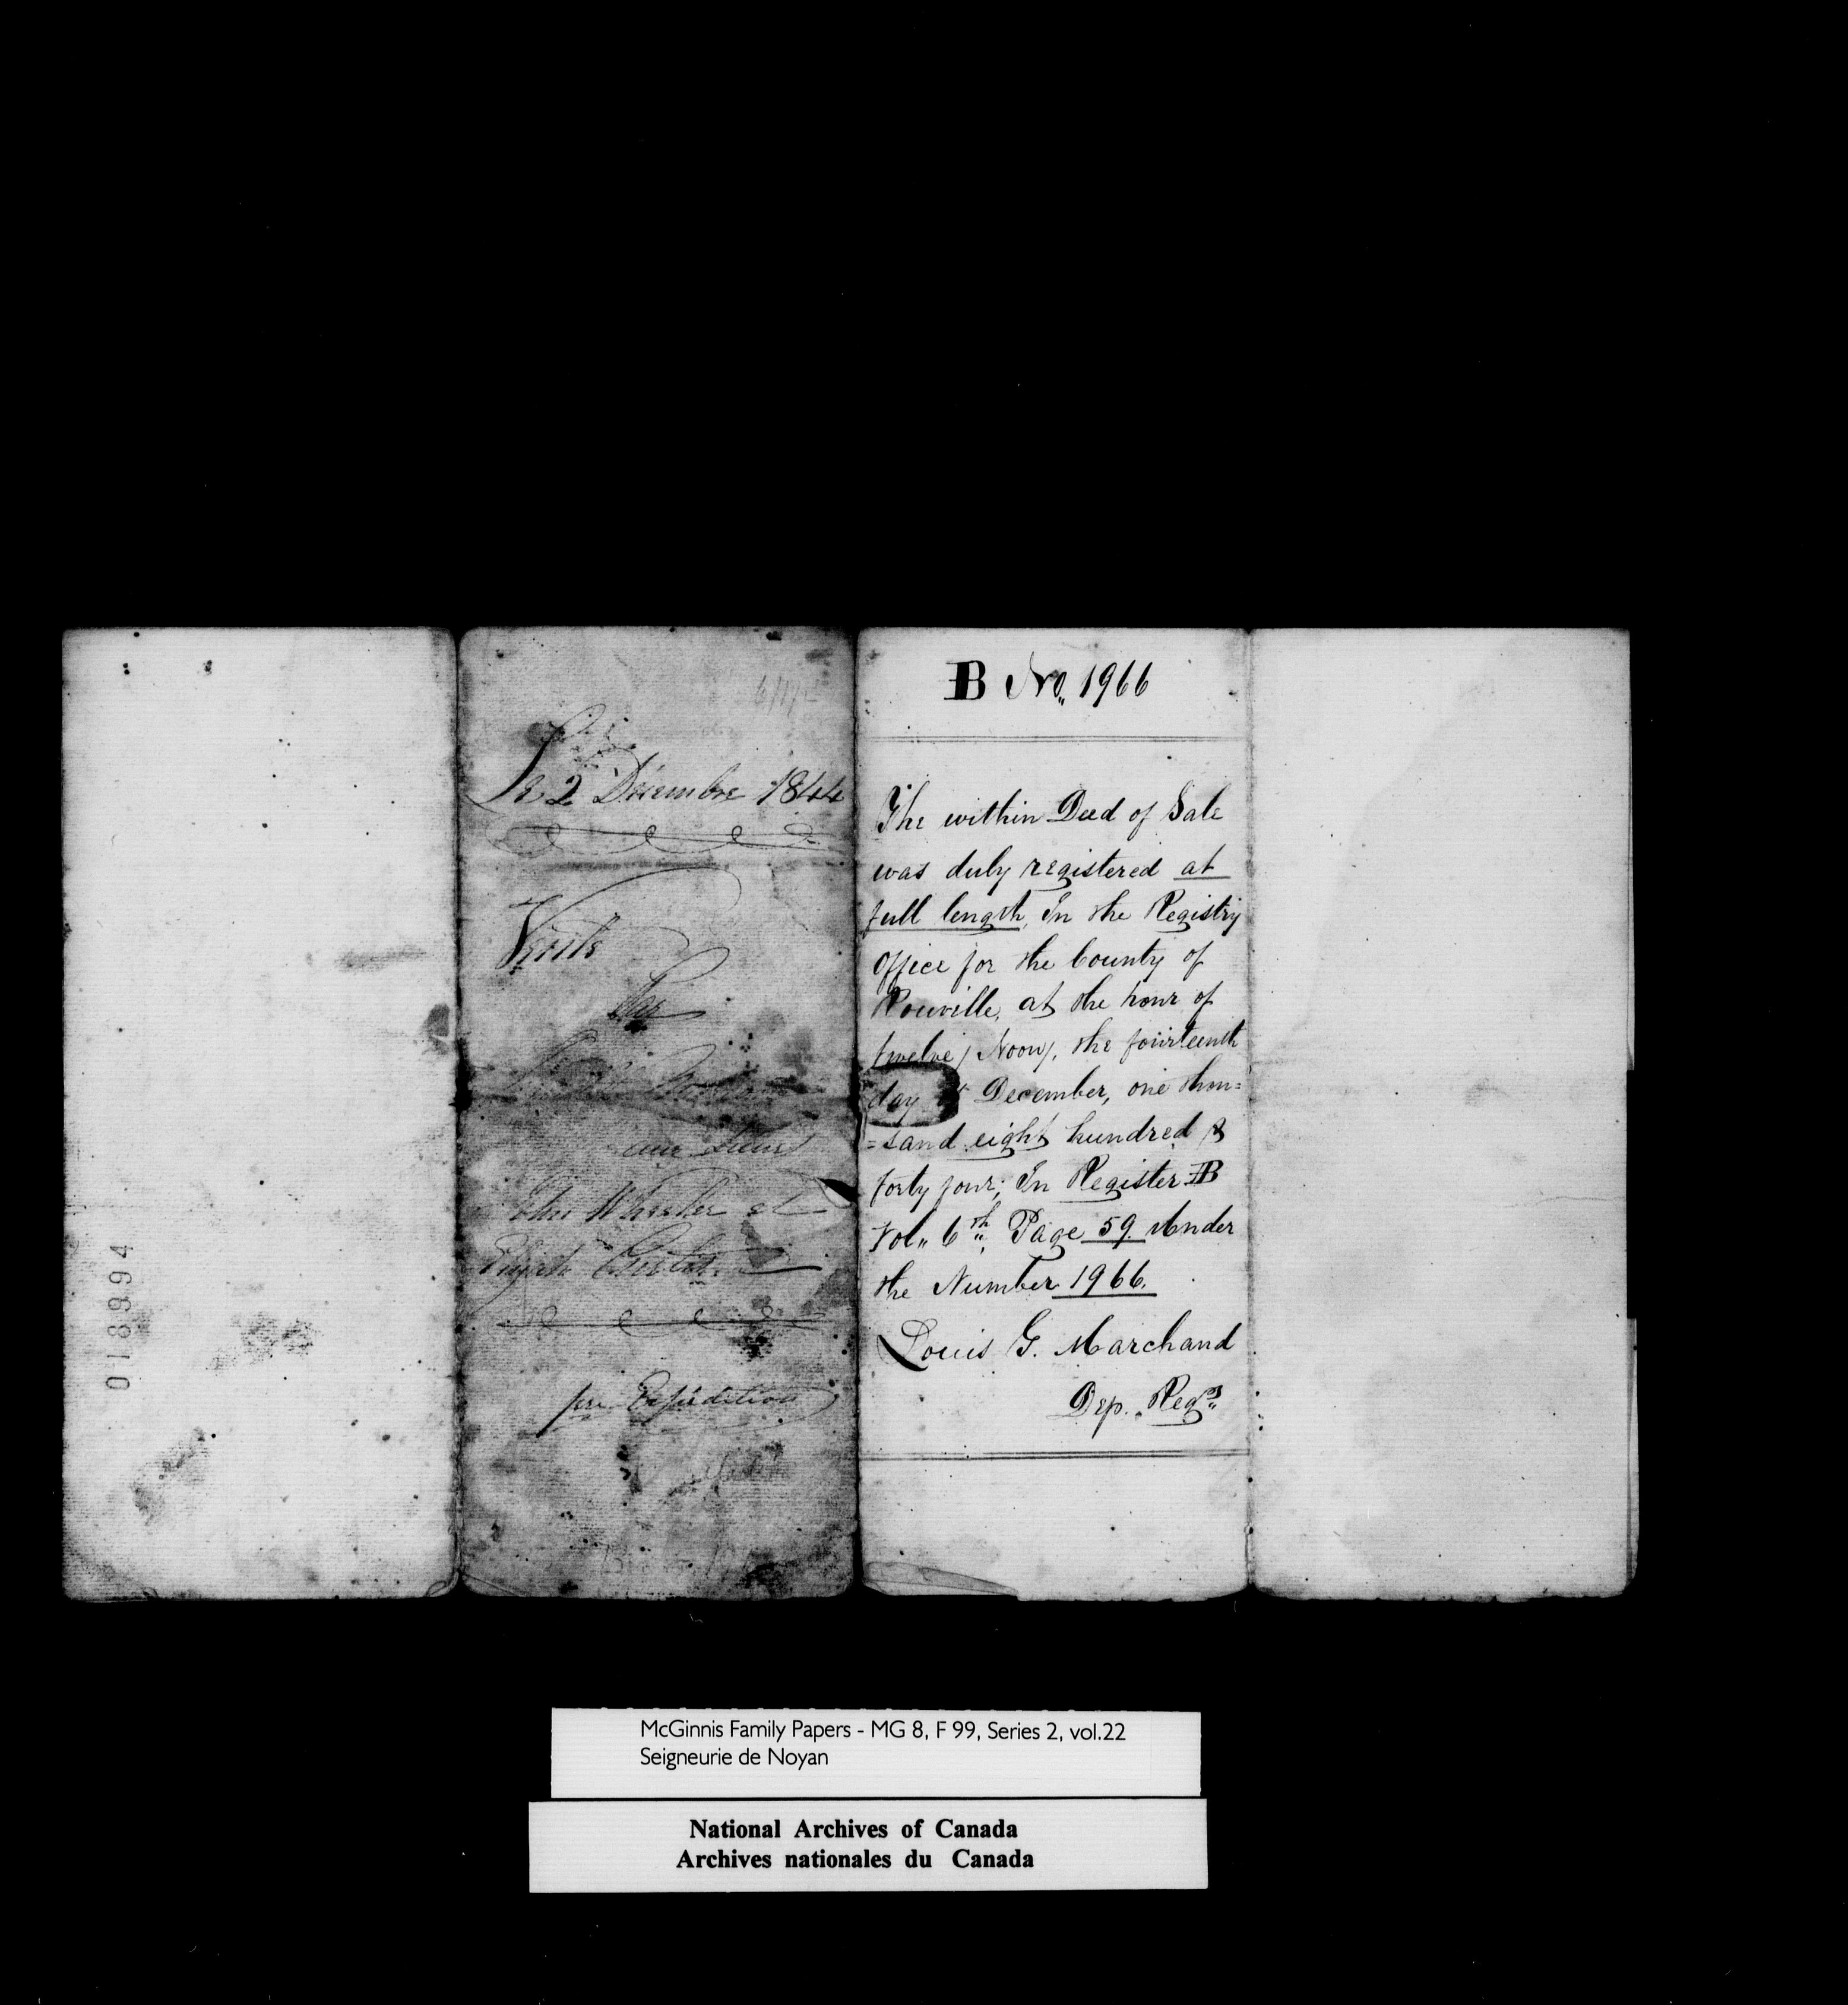 018994
Le 2 Décembre 1844
Vente
Par
aux Sieurs
John Wheeler et
Elijah
pre Expédition
B No. 1966
The within Deed of Sale
was duly registered at
full length, In the Registry
Office for the County of
Rouville, at the hour of
twelve / Noon /, the fourteenth
day of December, one thou=
=sand eight hundred &
forty four; In Register B
Vol. 6th, Page 59. Under
the Number 1966.
Louis G. Marchand
Dep. Regr
McGinnis Family Papers - MG 8, F 99, Series 2, vol.22
Seigneurie de Noyan
National Archives of Canada
Archives nationales du Canada